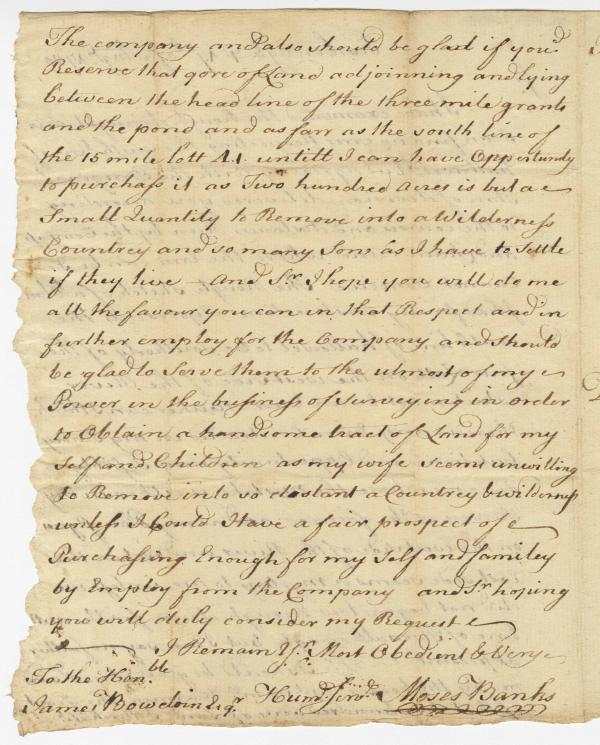 The company and also should be glad if you'd
Reserve that gore of Land adjoinning and lying
between the head line of the three mile grants
and the pond and as farr as the south line of
the 15 mile lott A.1. untill I can have Oppertundy
to purchass it as Two hundred acres is but a
Small Quantity to Remove into a Wilderness
Countrey and so many Sons as I have to settle
if they live — And Sr. I hope you will do me
all the favour you can in that Respect and in
further employ for the Company and should
be glad to Serve them to the utmost of my
Power in the business of Surveying in order
to Obtain a handsome tract of Land for my
Self and Children as my wife seems unwilling
to Remove into so distant a Countrey & wilderness
unless I Could Have a fair prospect of
Purchasing Enough for my Self and familey
by Employ from the Company and Sr. hoping
you will duly consider my Request
I Remain Yr. Most Obedient & Verye
To the Hon.ble
James Bowdoin Esqr. Humb. Servd. Moses Banks